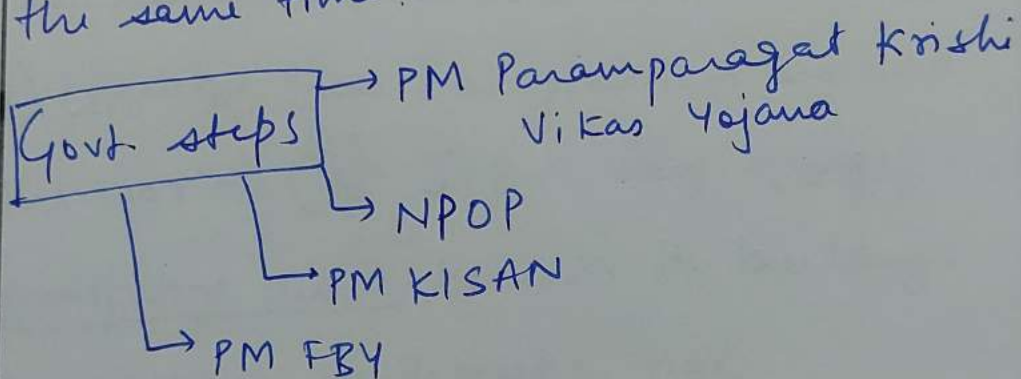 the same
Govt. steps
PM Paramparagat Krishi
Vikas Yojana
NPOP
PM KISAN
PM FBY